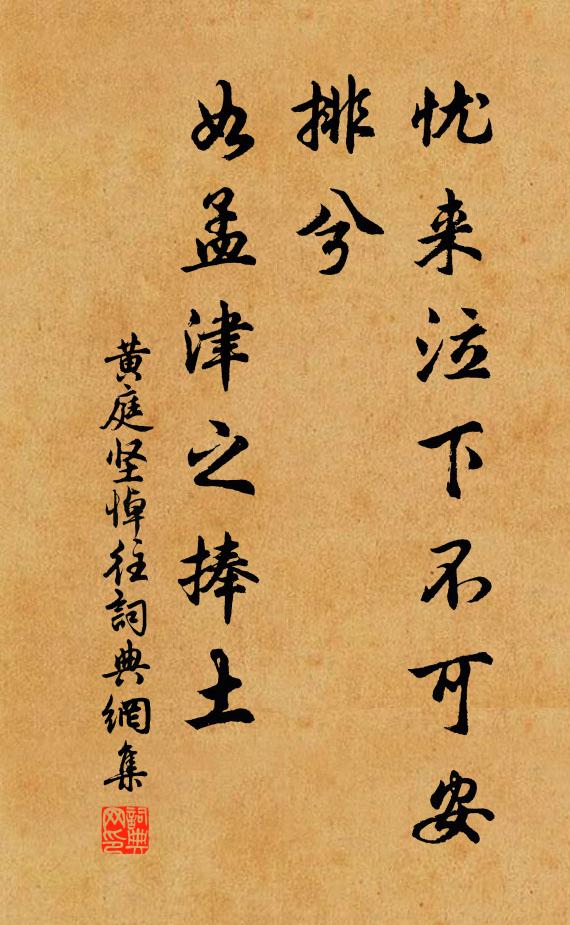 忧来泣下不可安
排兮
如孟津之捧土
黄庭坚悼往詞典網集
詞典网印